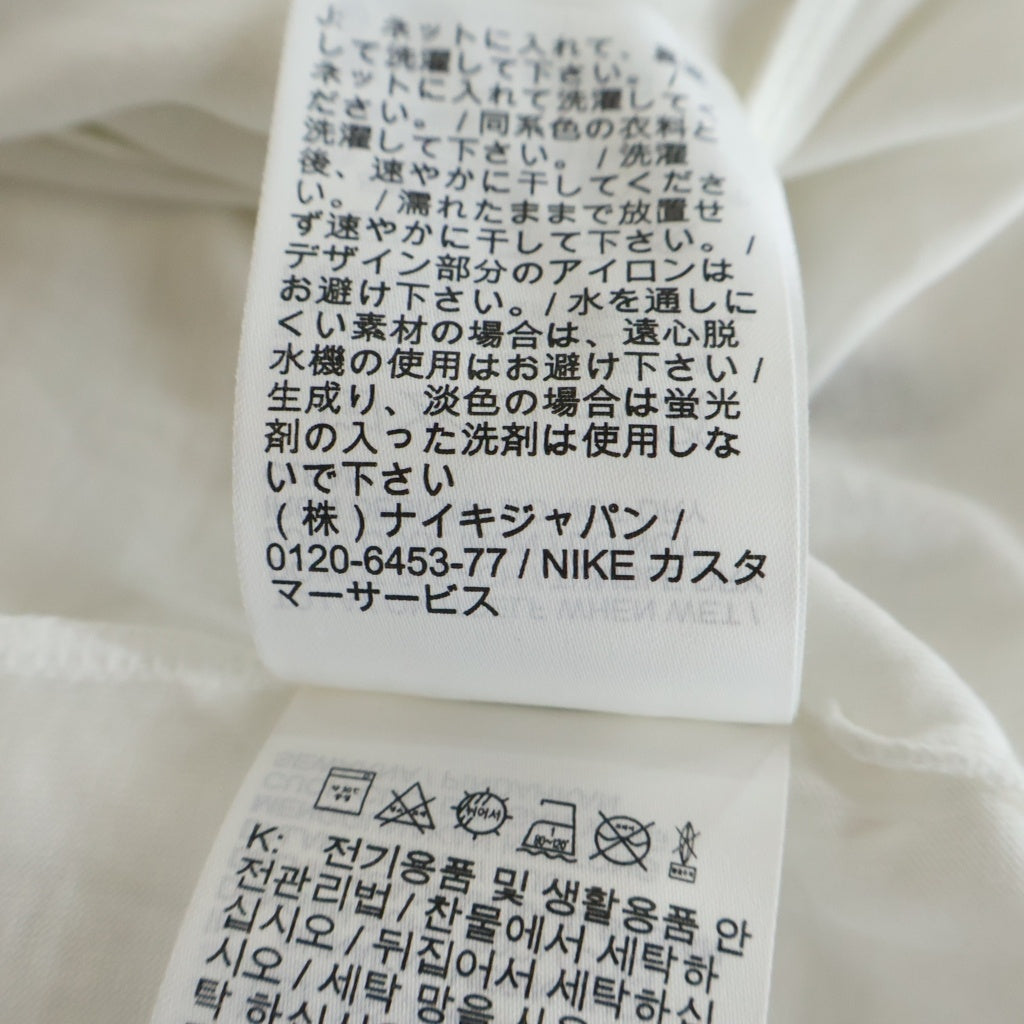 J: ネットに入れて、
して洗濯して下さい。/
ネットに入れて洗濯してく
ださい。/同系色の衣料と
洗濯して下さい。/洗濯
後、速やかに干してくださ
い。/濡れたままで放置せ
ず速やかに干して下さい。/
デザイン部分のアイロンは
お避け下さい。/水を通しに
くい素材の場合は、遠心脱
水機の使用はお避け下さい/
生成り、淡色の場合は蛍光
剤の入った洗剤は使用しな
いで下さい
(株)ナイキジャパン/
0120-6453-77 / NIKE カスタ
マーサービス
K: 전기용품 및 생활용품 안
전관리법 / 찬물에서 세탁하
십시오 / 뒤집어서 세탁하십
시오 / 세탁 망을
탁 하십시오